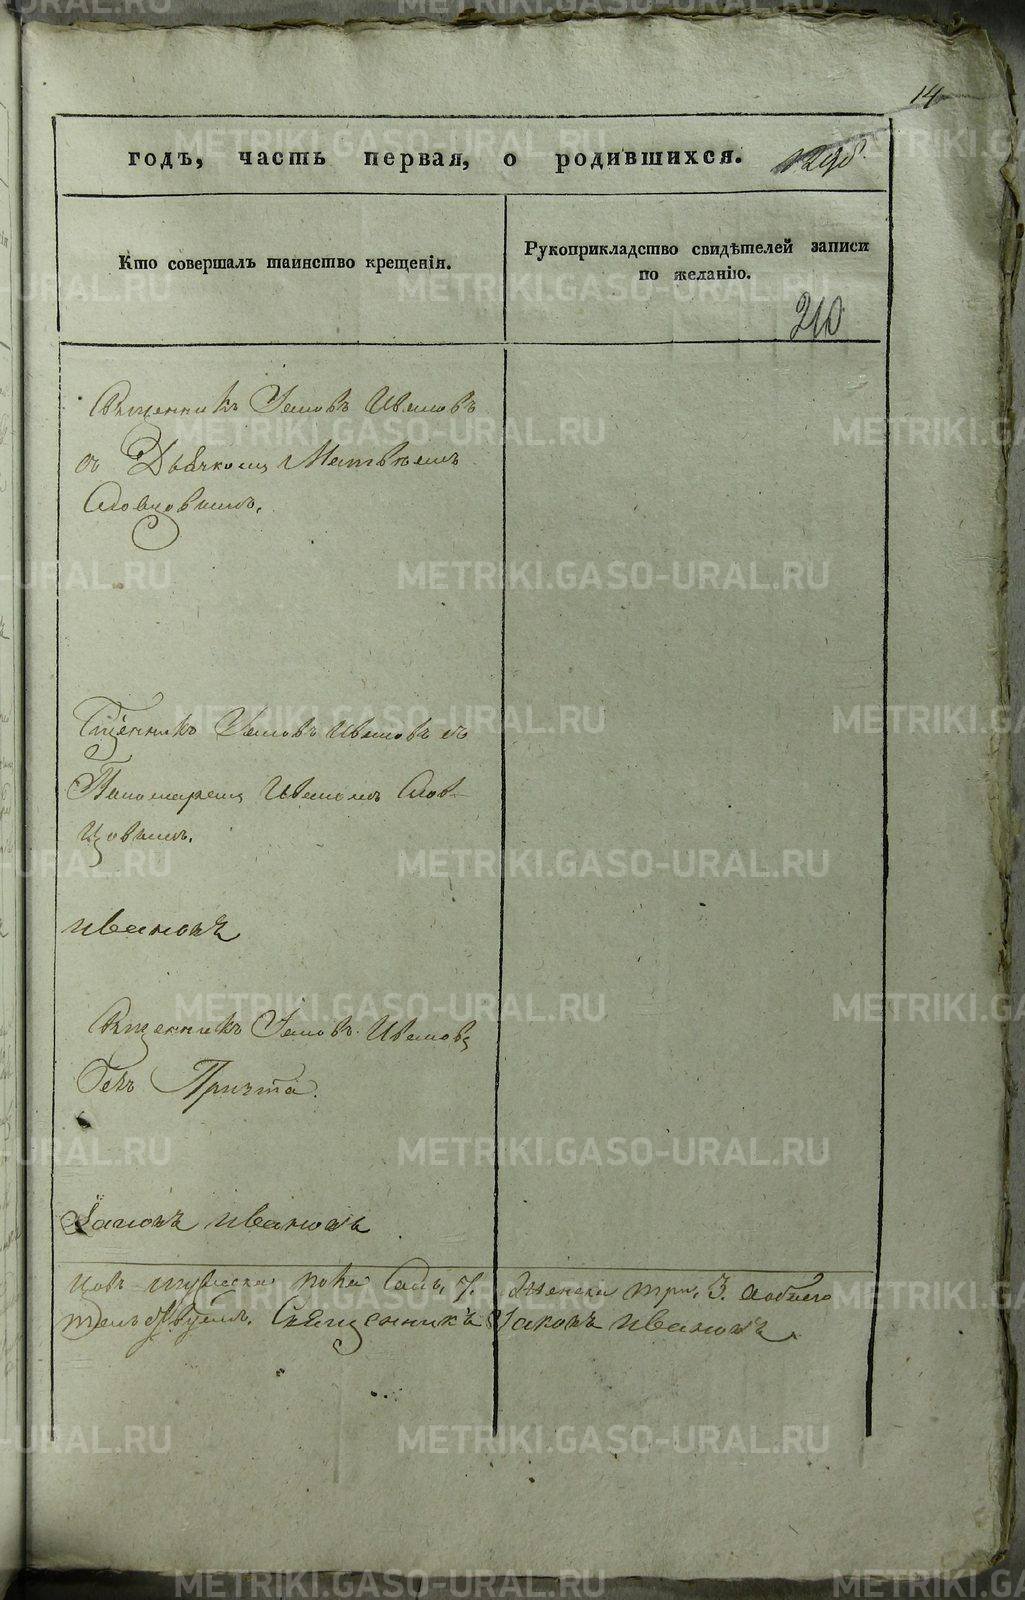 14
годъ, часть первая, о родившихся.
Кто совершалъ таинство крещенія.
Рукоприкладство свидѣтелей записи
по желанію.
210
Священникъ Іаковъ Ивановъ
съ Дьячкомъ Матвѣемъ
Словцовымъ.
Сщенникъ Іаковъ Ивановъ съ
Пономаремъ Иваномъ Слов-
цовымъ.
ивановъ
Священникъ Іаковъ Ивановъ
безъ Причта.
Іаковъ ивановъ
мужеска пола семь, 7. Женска три, 3. а обоего
Священникъ Іаковъ ивановъ.
METRIKI.GASO-URAL.RU